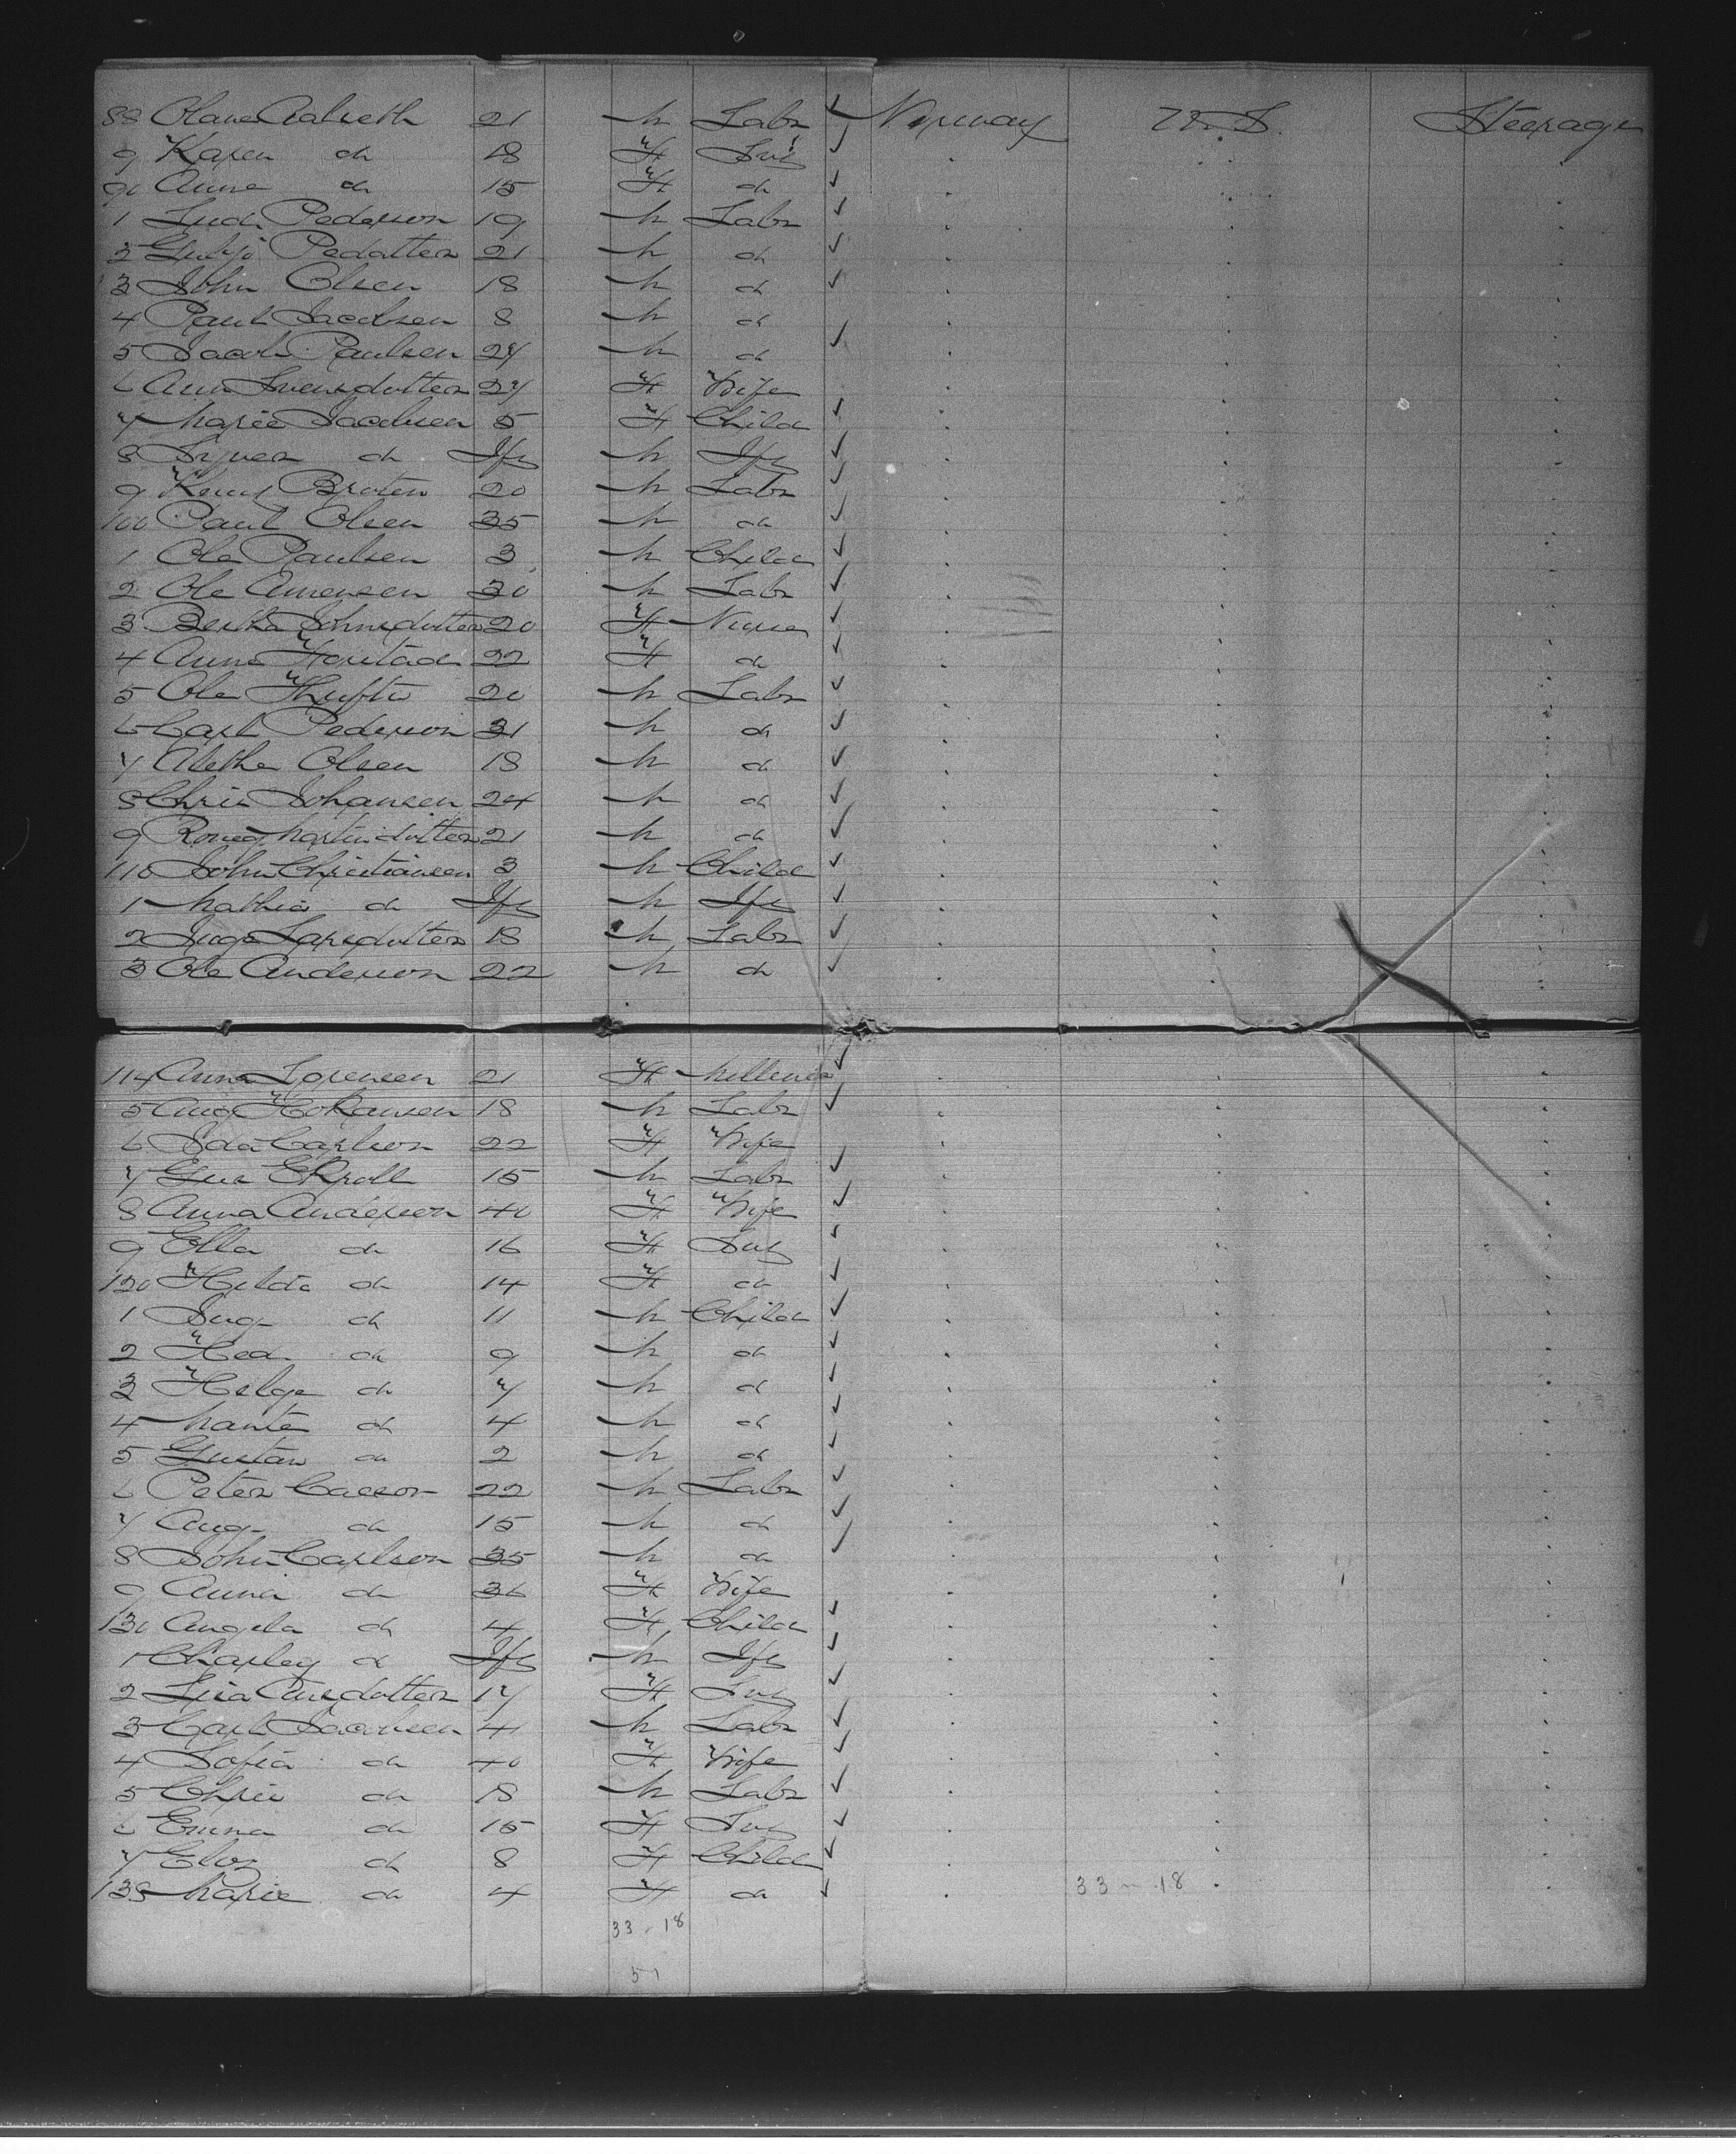 88 Olava Aalseth 21 M Labr ✓ Norway U.S. Steerage
9 Karen do 18 F Svt ✓
90 Anna do 15 F do ✓
1 Pederson 19 M Labr ✓
2 Pedatter 21 M do ✓
3 John Olsen 18 M do ✓
4 Paul Jacobsen 8 M do
5 Jacob Paulsen 27 M do ✓
6 Ann Svensdatter 27 F Wife
7 Marie Jacobsen 5 F Child ✓
8 Syver do Inf M Inf ✓
9 Knud Braten 20 M Labr ✓
100 Paul Olsen 35 M do ✓
1 Ole Paulsen 3 M Child ✓
2 Ole Amensen 30 M Labr ✓
3 Bertha Johnsdatter 20 F Nurse ✓
4 Anna 22 F do ✓
5 Ole 20 M Labr ✓
6 Carl Pederson 21 M do ✓
7 Alethe Olsen 18 M do ✓
8 Chris Johansen 24 M do ✓
9 Martindatter 21 M do ✓
110 John Christiansen 3 M Child ✓
1 Mathia do Inf M Inf ✓
2 Inga Larsdatter 18 M Labr ✓
3 Ole Anderson 22 M do ✓
114 Anna Sorensen 21 F Milliner ✓
5 Aug Hokansen 18 M Labr ✓
6 Ida Carlson 22 F Wife
7 Gus Ekroll 15 M Labr ✓
8 Anna Anderson 40 F Wife ✓
9 Ella do 16 F Svt ✓
120 Hilda do 14 F do ✓
1 Aug do 11 M Child ✓
2 Hed do 9 M do ✓
3 Helge do 7 M do ✓
4 Mante do 4 M do ✓
5 Gustav do 2 M do ✓
6 Peter Casson 22 M Labr ✓
7 Aug do 15 M do ✓
8 John Carlson 35 M do ✓
9 Anna do 36 F Wife
130 Angela do 4 F Child ✓
1 Charley do Inf M Inf ✓
2 Lisa Ansdatter 17 F Svt ✓
3 Carl Jacobsen 41 M Labr ✓
4 Sofia do 40 F Wife ✓
5 Chris do 18 M Labr ✓
6 Emma do 15 F Svt ✓
7 do 8 F Child ✓
138 Marie do 4 F do ✓ 33 - 18
33 - 18
51